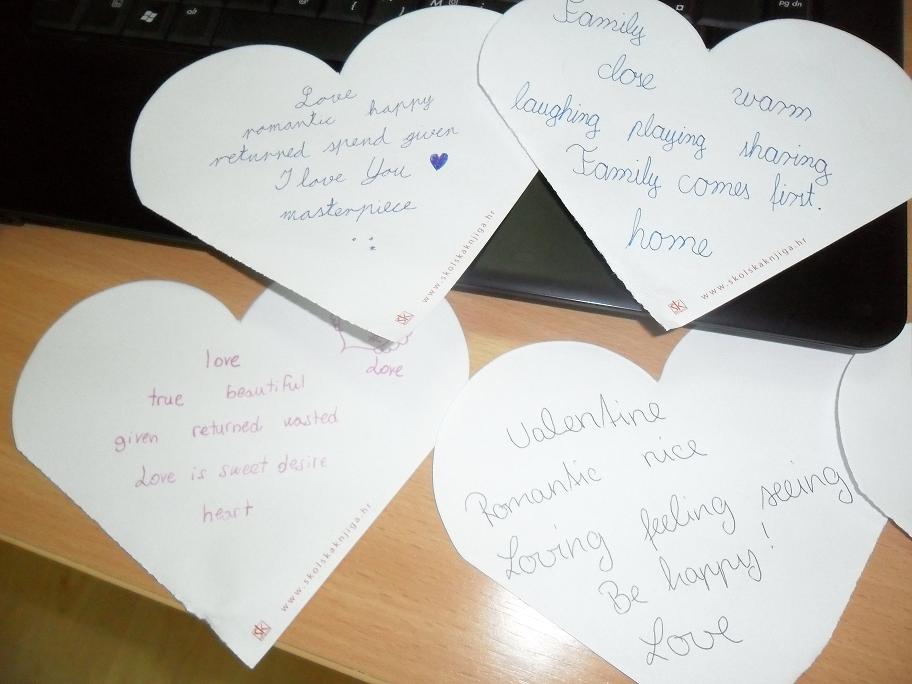 Love
romantic happy
returned spend given
I love You
masterpiece
www.skolskaknjiga.hr
sk
Family
close warm
laughing playing sharing
Family comes first.
home
www.skolskaknjiga.hr
sk
love
true beautiful
given returned wasted
Love is sweet desire
heart
Love
www.skolskaknjiga.hr
sk
Valentine
Romantic nice
Loving feeling seeing
Be happy!
Love
alt
pg dn